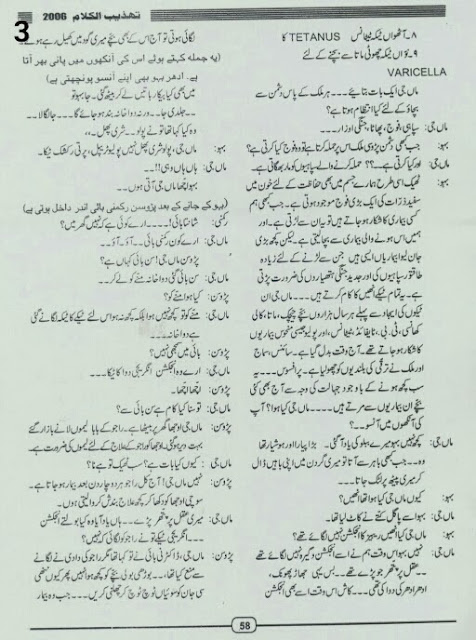 3
تہذیب الکلام 2006
۸۔ آٹھواں ٹیکہ ٹیٹانس TETANUS کا
۹۔ نواں ٹیکہ چھوٹی ماتا سے بچنے کے لئے
VARICELLA
ماں جی ایک بات بتایئے... ہر ملک کے پاس دشمن سے
بچاؤ کے لئے کیا انتظام ہوتا ہے؟
ماں جی: سپاہی، فوج، بھالا، جنگی اوزار...
بہو: جب بھی دشمن پڑوسی ملک پر حملہ کرتا ہے تو وہ فوج کیا کرتی ہے؟
ماں جی: اور کیا کرتی ہے...؟؟ حملہ کرنے والے سپاہیوں کو مار بھگاتی ہے۔
بہو: ٹھیک اسی طرح ہمارے جسم میں بھی حفاظت کے لئے خون میں
سفید ذرات کی ایک بڑی فوج موجود ہوتی ہے۔ جب کبھی ہم
کسی بیماری کا شکار ہو جاتے ہیں تو یہ ان سے لڑتی ہے۔ اور
ہمیں اس ہونے والی بیماری سے بچالیتی ہے۔ لیکن کچھ بڑی
جان لیوا بیماریاں ایسی ہیں جن سے لڑنے کے لئے زیادہ
طاقتور سپاہیوں کی اور جدید جنگی ہتھیاروں کی ضرورت پڑتی
ہے۔ یہ تمام ٹیکے انھیں کا کام کرتے ہیں... ماں جی ان
ٹیکوں کی ایجاد سے پہلے ہر سال ہزاروں بچے چیچک، ماتا، کالی
کھانسی، ٹی.بی، ٹائیفائڈ، ٹیٹانس، اور پولیو جیسی منحوس بیماریوں
کا شکار ہو جاتے تھے۔ آج وقت بدل گیا ہے۔ سائنس، سماج
اور ملک نے ترقی کی بلندیوں کو چھولیا ہے۔ پر افسوس... یہ
سب کچھ ہونے کے باوجود جہالت کی وجہ سے آج بھی کئی
بچے ان بیماریوں سے مرتے ہیں... ماں جی کیا ہوا؟ آپ
کی آنکھوں میں آنسو..؟
ماں جی: کچھ نہیں بہو میرے ببلو کی یاد آگئی۔ بڑا پیارا اور ہوشیار تھا
وہ... جب کبھی باہر سے آتا تو میری گردن میں اپنی باہیں ڈال
کر میری پیٹھ پر لٹک جاتا...
بہو: کیوں ماں جی کیا ہوا تھا انھیں؟
ماں جی: بہو اسے پاگل کتے نے کاٹ لیا تھا۔
بہو: کیوں ماں جی انھیں، ریبیز کا انجکشن نہیں لگائے تھے؟
ماں جی: نہیں بہو اس وقت ہم نے اسے انجکشن وغیرہ نہیں لگائے تھے
.. عقل پر پتھر جو پڑے تھے... بس یہی جھاڑ پھونک،
ادھر ادھر کی دوا کی تھی... کاش اس وقت اسے بھی انجکشن
لگائی ہوتی تو آج اس کے بھی بچے میری گود میں کھیل رہے ہوتے..
(یہ جملہ کہتے ہوئے اس کی آنکھوں میں پانی بھر آتا
ہے. ادھر بہو بھی اپنے آنسو پونچھتی ہے)
میں بھی کیا بیکار باتیں لے کر بیٹھ گئی۔ جا بہو تو
... جلدی جا۔ ورنہ دواخانہ بند ہو جائے گا... جا لگا لا...
وہ کیا کہا تھا تو نے پولو... شری پھل ...،
بہو: ماں جی، پولیو شری پھل نہیں پولیو ٹریپل، پرتی رکشک ٹیکا۔
ماں جی: ہاں ہاں وہی!!..
بہو: اچھا ماں جی آتی ہوں..
(بہو کے جانے کے بعد پڑوسن رکمنی بائی اندر داخل ہوتی ہے)
رکمنی: شانتا بائی!... ارے کوئی ہے کہ نہیں گھر میں؟
ماں جی: ارے کون رکمنی بائی... آؤ.. آؤ..
پڑوسن: ماں جی! سن بائی کہاں ہے؟
ماں جی: سن بائی گئی دواخانہ منے کو لے کر...
پڑوسن: کیا ہوا منے کو؟
ماں جی: منے کو تو کچھ نہیں ہوا بلکہ کچھ نہ ہو اس لئے ٹیکے کا ٹیکہ لگانے گئی
ہے دواخانہ...
پڑوسن: بائی میں سمجھی نہیں؟
ماں جی: ارے وہ انجکشن انگریجی دوا کا ٹیکا...
پڑوسن: اچھا اچھا۔
ماں جی: تو سنا کیا کام ہے سن بائی سے؟
پڑوسن: ماں جی اوجھا گھر پر بیٹھا ہے۔ راجو کے بابا لیموں لانے بازار گئے
بہت دیر ہو گئی۔ اوجھا کو راجو کے علاج کے لئے لیموں کی ضرورت ہے۔
ماں جی: کیوں کیا بات ہے؟ سب ٹھیک تو ہے نا؟
پڑوسن: نہیں ماں جی! آج کل راجو ہر دو چار دن بعد بیمار ہو جاتا ہے۔
سوچی اوجھا کو دکھا کر کچھ علاج بندش کروالیتی ہوں۔
ماں جی: میری عقل پر پتھر پڑے... ہاں یاد آیا وہ کیا بولتے انجکشن
... انگریجی ٹیکے تو نے راجو کو لگائی کہ نہیں؟
پڑوسن: ماں جی، ڈاکٹرنی بائی نے تو کہا تھا مگر راجو کی دادی نے لگانے
سے منع کیا تھا... بوڑھی بولی بچے کو کچھ ہوا نہیں پھر کیوں ننھی
سی جان کو سوئیاں ٹوچ ٹوچ کر چھلنی کریں... جب وہ بیمار
58